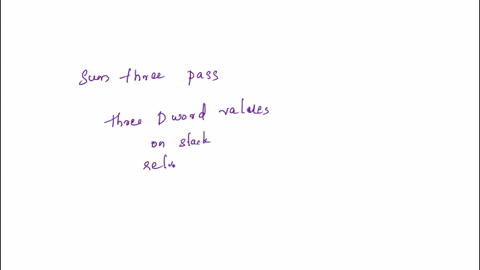 Sum three pass
three Dword values
on stack